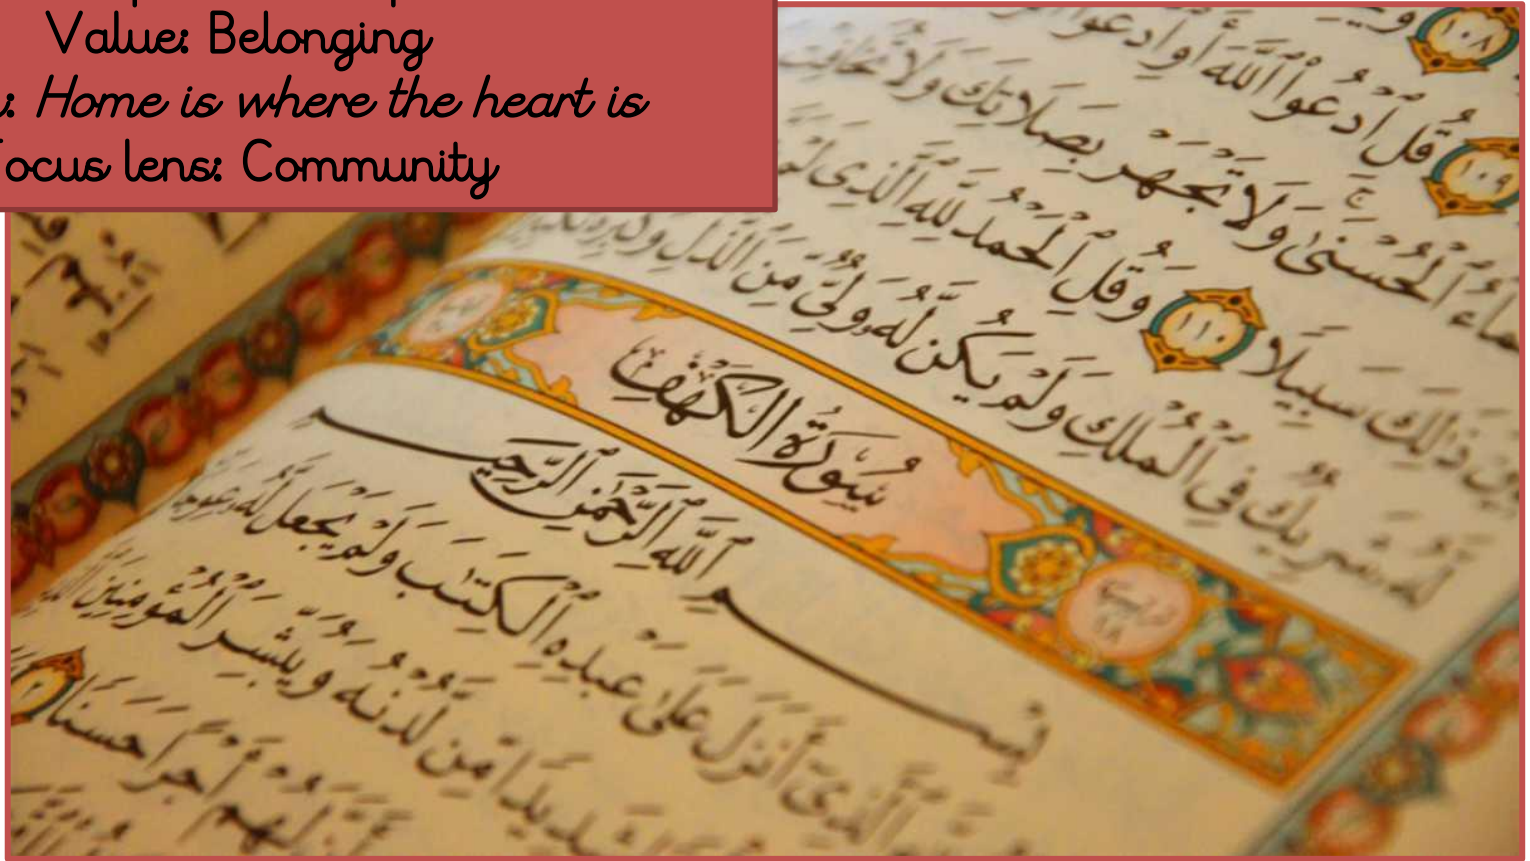 Value: Belonging
: Home is where the heart is
ocus lens: Community
١٠٨
قُلِ ٱدْعُوا۟ ٱللَّهَ أَوِ ٱدْعُوا۟
١٠٩
ٱلْحُسْنَىٰ وَلَا تَجْهَرْ بِصَلَاتِكَ وَلَا تُخَافِتْ
ذَٰلِكَ سَبِيلًا ١١٠ وَقُلِ ٱلْحَمْدُ لِلَّهِ ٱلَّذِى لَمْ
لَّهُۥ شَرِيكٌ فِى ٱلْمُلْكِ وَلَمْ يَكُن لَّهُۥ وَلِىٌّ مِّنَ ٱلذُّلِّ وَكَبِّرْهُ
سُورَةُ الكَهْفِ
١٨
بِسْمِ ٱللَّهِ ٱلرَّحْمَٰنِ ٱلرَّحِيمِ
ٱلَّذِىٓ أَنزَلَ عَلَىٰ عَبْدِهِ ٱلْكِتَٰبَ وَلَمْ يَجْعَل لَّهُۥ عِوَجَا
شَدِيدًا مِّن لَّدُنْهُ وَيُبَشِّرَ ٱلْمُؤْمِنِينَ
لَهُمْ أَجْرًا حَسَنًا ٢